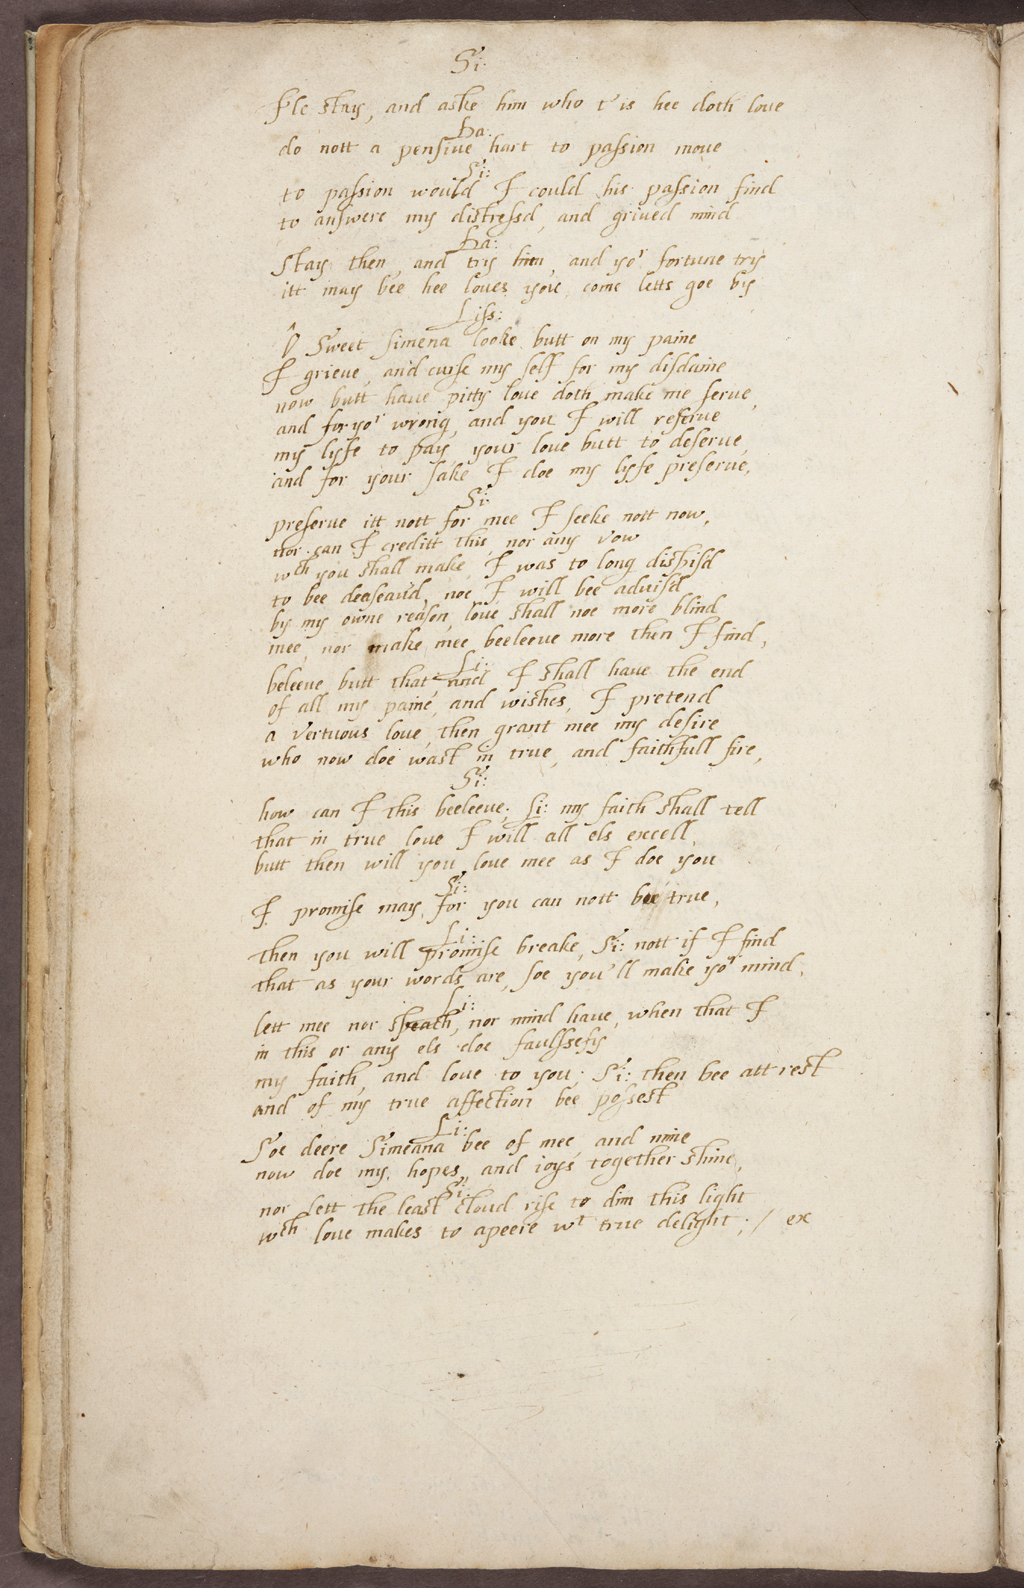 Si:
I'le stay, and aske him who t'is hee doth love
Da:
do nott a pensive hart to passion move
Si:
to passion would I could his passion find
to answere my distressd, and grived mind
Da:
stay then, and try him, and yor fortune try
itt may bee hee loves you, come letts goe by
Liss:
O sweet simena looke butt on my paine
I grieve, and curse my self for my disdaine
now butt have pitty love doth make me serve,
and for yor wrong, and you I will reserve
my lyfe to pay your love butt to deserve,
and for your sake I doe my lyfe preserve,
Si:
preserve itt nott for mee I seeke nott now,
nor can I creditt this, nor any vow
wch you shall make, I was to long dispisd
to bee deaseavd, noe I will bee advisd
by my owne reason, love shall noe more blind
mee, nor make mee beeleeve more then I find,
Li:
beleeve butt that, and I shall have the end
of all my paine, and wishes, I pretend
a vertuous love, then grant mee my desire
who now doe wast in true, and faithfull fire,
Si:
how can I this beeleeve; Li: my faith shall tell
that in true love I will all els excell,
butt then will you love mee as I doe you
Si:
I promise may, for you can nott bee true,
Li:
then you will promise breake, Si: nott if I find
that as your words are, soe you'll make yor mind,
Li:
lett mee nor speach, nor mind have, when that I
in this or any els doe faulssefy
my faith, and love to you; Si: then bee att rest
and of my true affection bee possest
Li:
Soe deere Simeana bee of mee, and mine
now doe my hopes, and joys together shine,
Si:
nor lett the least cloud rise to dim this light
wch love makes to apeere wt true delight; / ex